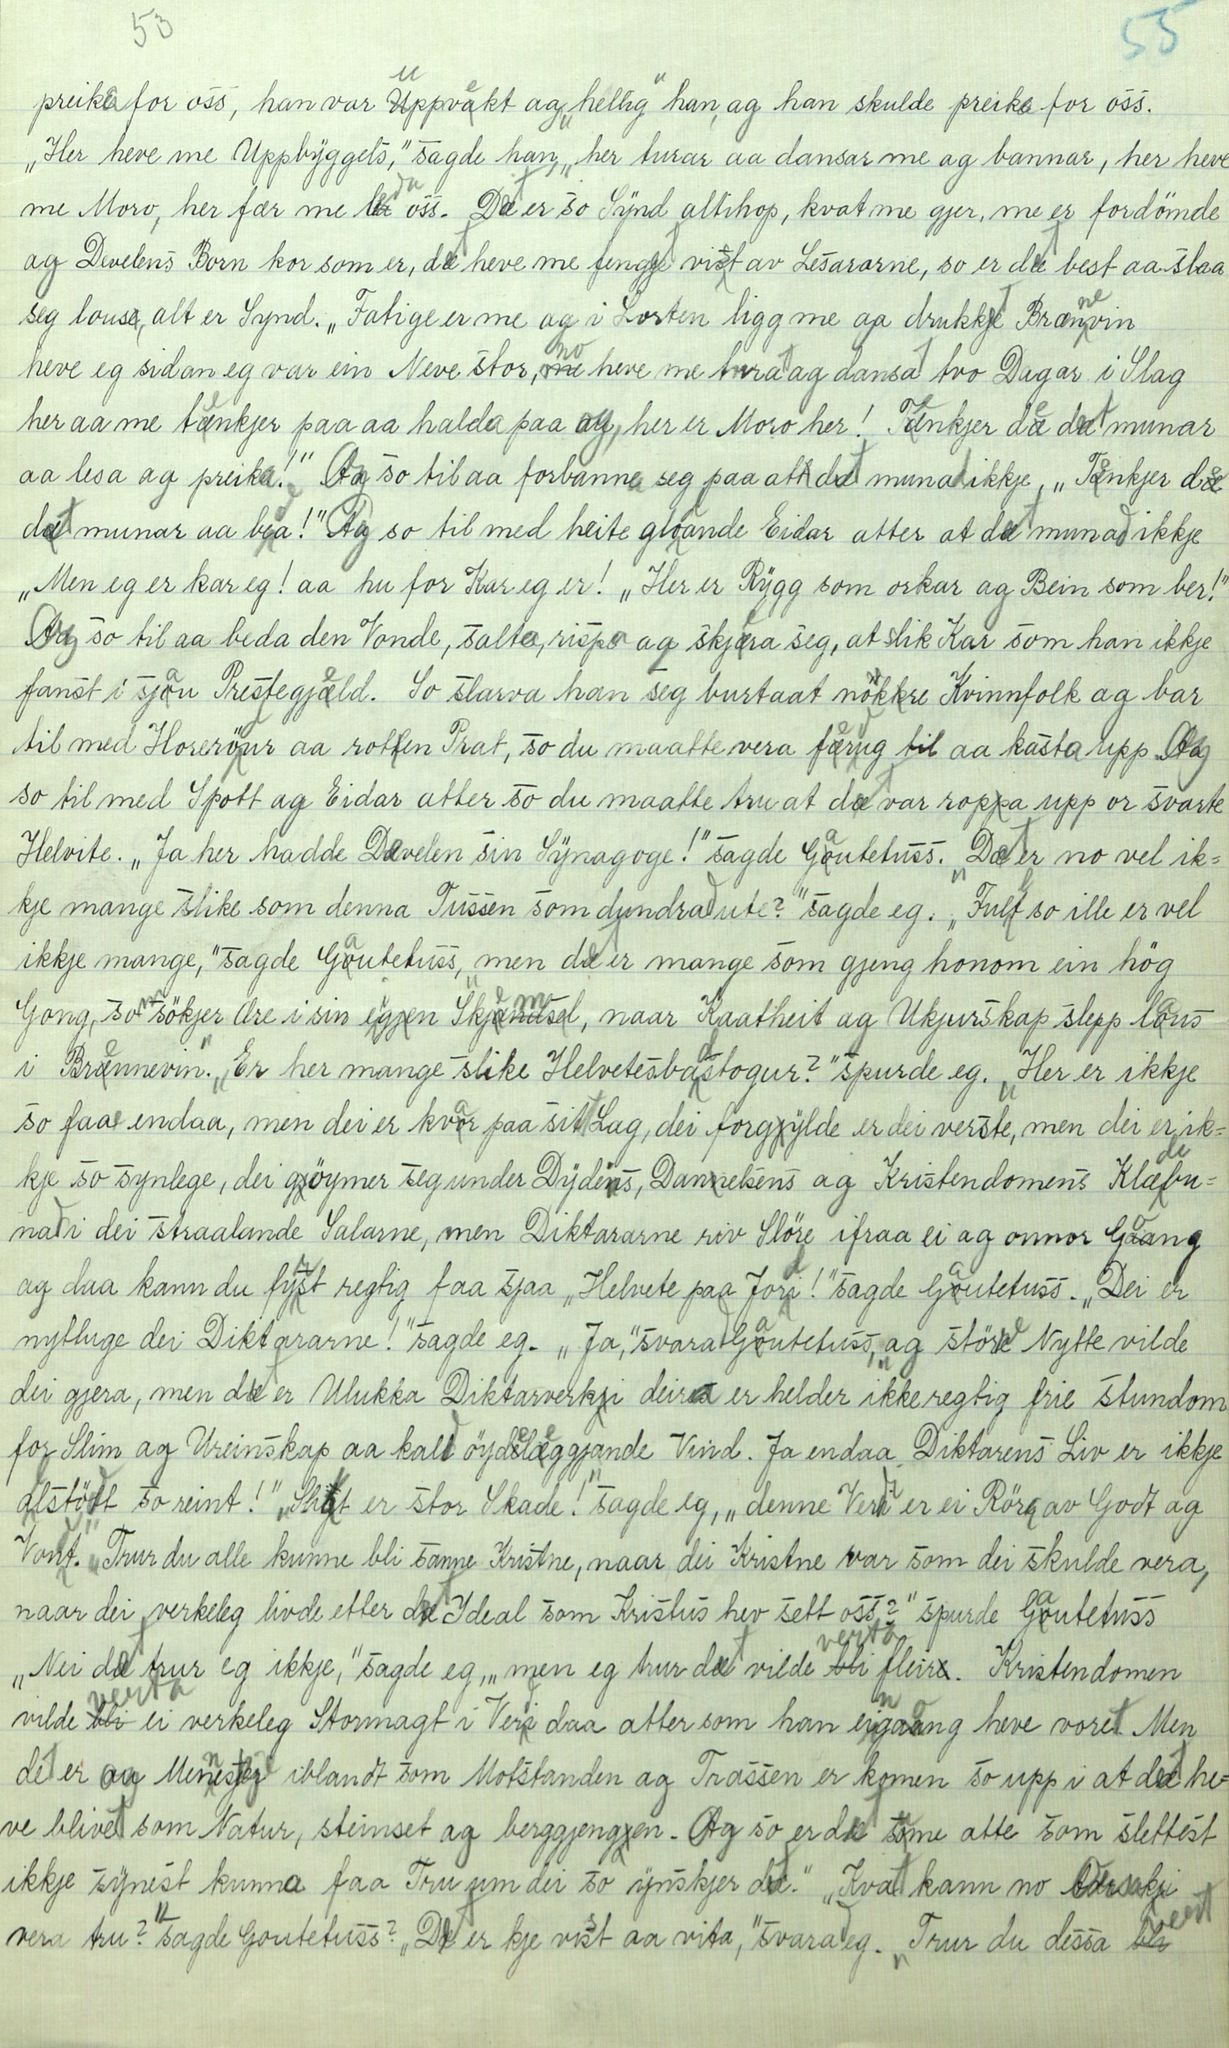 53 55
preika for oss, han var uppvakt ag „hellig" han, ag han skulde preika for oss.
„Her heve me Uppbyggels," sagde han, „her turar aa dansar me ag bannar, her heve
me Moro, her fær me leda oss. Det er so Synd altihop, kvat me gjer, me er fordömde
ag Develens Born kor som er, det heve me fenget vist av Lesararne, so er det best aa slaa
seg lous, alt er Synd. „Fatige er me ag i Lorten ligg me aa drukket Brennevin
heve eg sidan eg var ein Neve stor, no heve me turat ag dansat tvo Dagar i Slag
her aa me tenkjer paa aa halda paa ag, her er Moro her! Tenkjer de det munar
aa lesa ag preika!" Ag so til aa forbanna seg paa at det munad ikkje, „Tenkjer de
det munar aa bea!" Ag so til med heite gloande Eidar atter at det munad ikkje
„Men eg er kar eg! aa hu for Kar eg er! „Her er Rygg som orkar ag Bein som ber!"
Ag so til aa beda den Vonde, salta, rispa ag skjera seg, at slik Kar som han ikkje
fanst i sjau Prestegjeld. So slarva han seg burtaat nokre Kvinnfolk ag bar
til med Horeröur aa rotten Prat, so du maatte vera færug til aa kasta upp. Ag
so til med Spott ag Eidar atter so du maatte tru at det var roppa upp or svarte
Helvite. „Ja her hadde Develen sin Synagoge!" sagde Gautetuss. „Det er no vel ik=
kje mange slike som denna Tussen som dundrad ute?" sagde eg. „Fult so ille er vel
ikkje mange," sagde Gautetuss, „men det er mange som gjeng honom ein hög
Gong, som sökjer Ære i sin eigen Skjemsel, naar Kaatheit ag Ukjurskap slepp laus
i Brennevin." „Er her mange slike Helvetesbastogur?" spurde eg. „Her er ikkje
so faae endaa, men dei er kvar paa sit Lag, dei forgylde er dei verste, men dei er ik=
kje so synlege, dei göymer seg under Dydens, Danelsens ag Kristendomens Klædebu=
nad i dei straalande Salarne, men Diktararne riv Slöre ifraa ei ag onnor Gaang
ag daa kann du fyst regtig faa sjaa „Helvete paa Jord!" sagde Gautetuss. „Dei er
nyttuge dei Diktararne!" sagde eg. „Ja," svarad Gautetuss, „ag störe Nytte vilde
dei gjera, men det er Ulukka Diktarverki deira er helder ikke regtig frie stundom
for Slim ag Ureinskap aa kald öydeleggjande Vind. Ja endaa Diktarens Liv er ikkje
alstödt so reint!" „Sligt er stor Skade!" sagde eg, „denne Verd er ei Röra av Godt ag
Vondt." „Trur du alle kunne bli sanne Kristne, naar dei Kristne var som dei skulde vera,
naar dei verkeleg livde etter det Ideal som Kristus hev sett oss?" spurde Gautetuss
„Nei det trur eg ikkje," sagde eg, „men eg trur det vilde verta fleire. Kristendomen
vilde verta ei verkeleg Stormagt i Verdi daa atter som han eingaang heve voret. Men
det er ag Mennesker iblandt som Motstanden ag Trassen er komen so upp i at det he=
ve blivet som Natur, steinset ag berggjengen. Ag so er det some atte som slettest
ikkje synest kunna faa Tru um dei so ynskjer det." „Kvat kann no
vera tru?" sagde Goutetuss? „Det er kje vist aa vita," svarad eg. „Trur du dessa vert